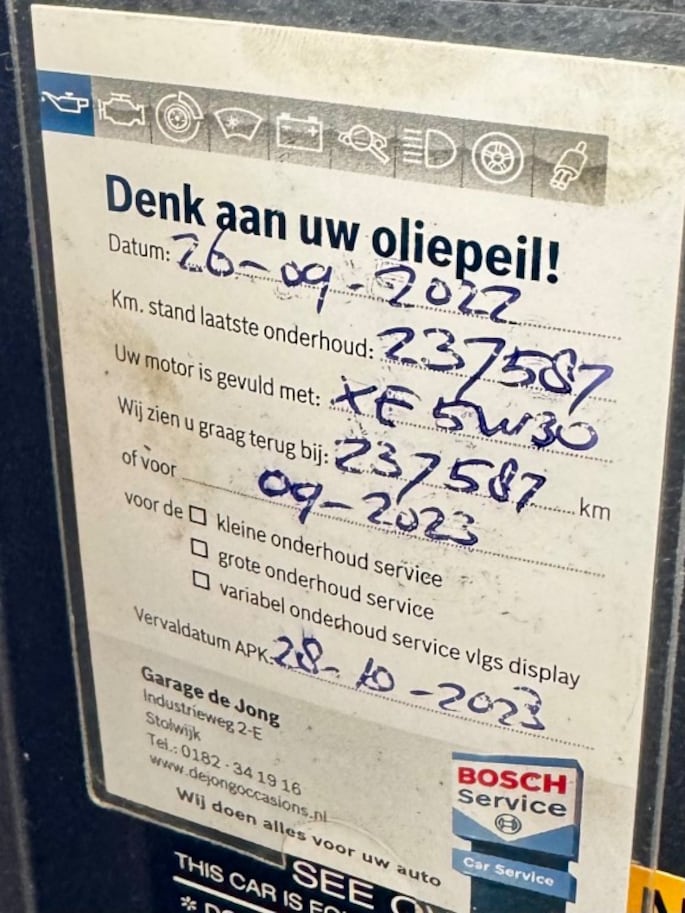 Denk aan uw oliepeil!
Datum: 26-09-2022
Km. stand laatste onderhoud: 237587
Uw motor is gevuld met: XE 5W30
Wij zien u graag terug bij: 237587 km
of voor 09-2023
voor de kleine onderhoud service
grote onderhoud service
variabel onderhoud service vlgs display
Vervaldatum APK: 28-10-2023
Garage de Jong
Industrieweg 2-E
Stolwijk
Tel.: 0182 - 34 19 16
www.dejongoccasions.nl
Wij doen alles voor uw auto
BOSCH
Service
Car Service
SEE
THIS CAR IS